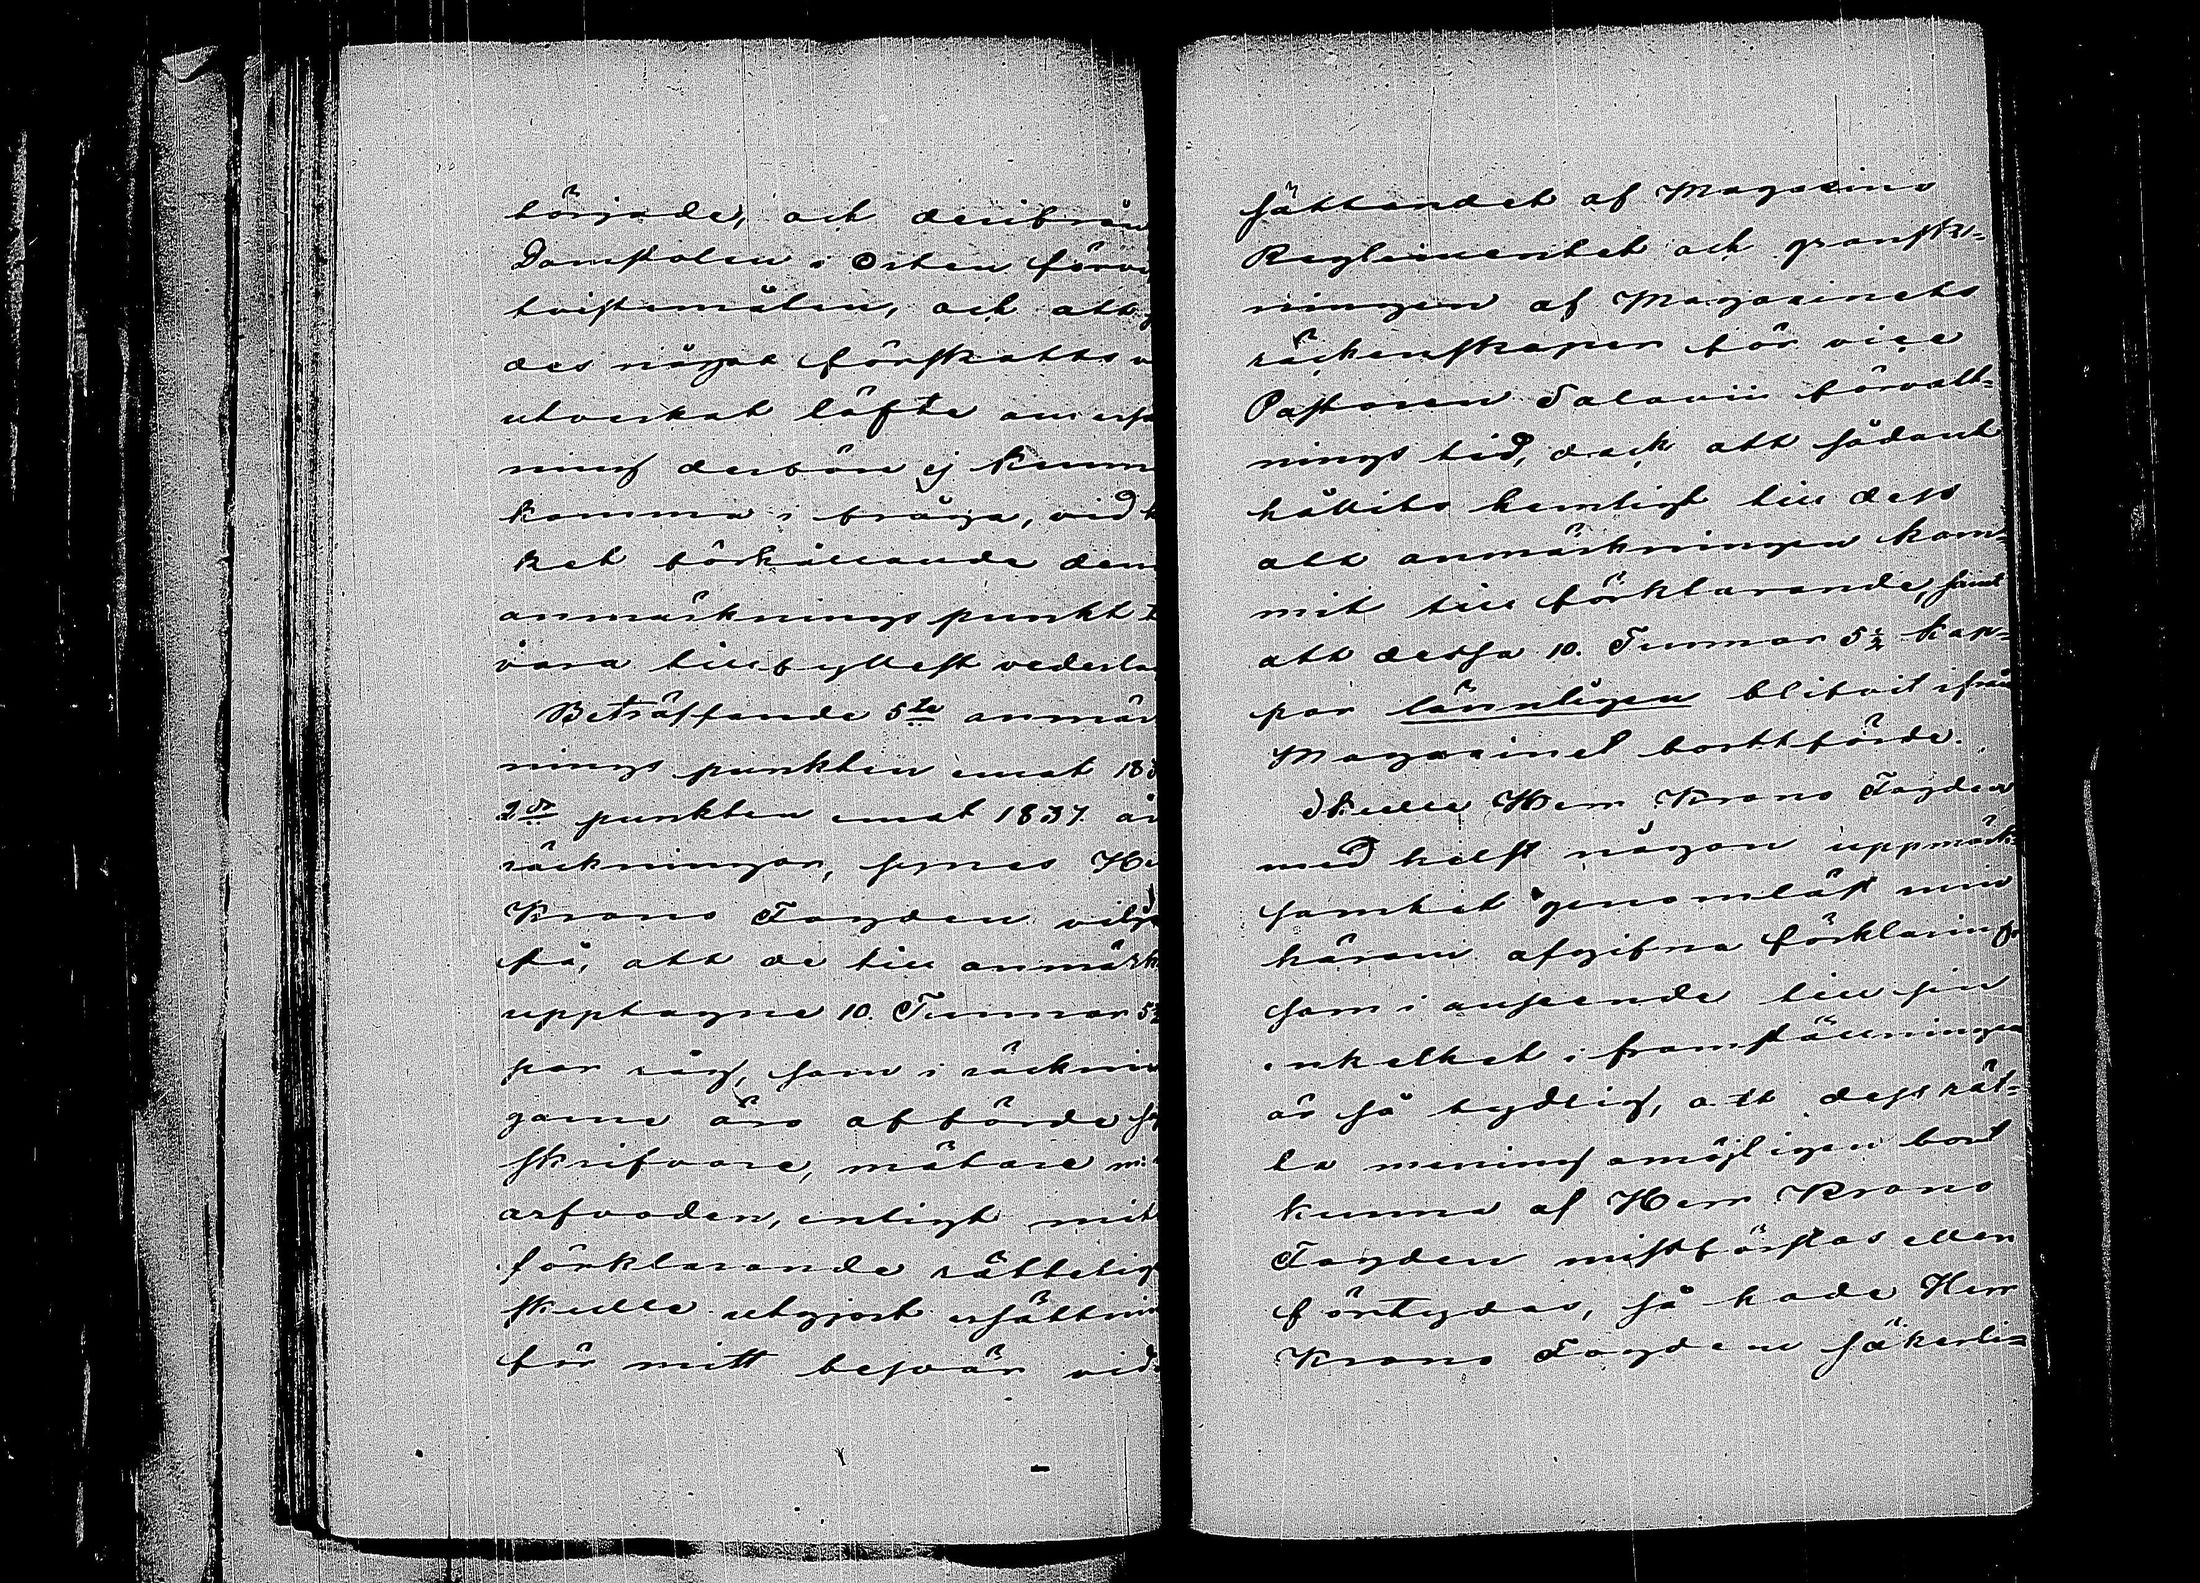 började, och derifrån
Domstolen i Orten förvi
tvistemålen, och att
des något förskotts
utverkat löfte om ersä
ning derföre ej kunn
komma i fråga, vid
ket förhållande den
anmärknings punkt t
vara tillfyllest vederla
Beträffande 5te anmär
nings punkten emot 183
2dr punkten emot 1837 år
räckningar, synes He
Krono Fogden vilja
få, att de till anmärk
upptagne 10. Tunnor 5½
par råg, som i räcknin
garne äro afförde så
skrifvare, mätare m:
arfvoden, enligt mit
förklarande rätteligt
skulle utgjort ersättni
för mitt besvär vid
sättandet af Magasins
Reglementet och gransk-
ningen af Magasinets
räkenskaper för vice
Pastoren Salovii förvalt-
nings tid, dock att sådant
hållits hemligt till dess
att anmärkningen kom-
mit till förklarande, samt
att dessa 10. Tunnor 5½ kap-
par lönnligen blifvit ifrån
Magasinet bortförde.
Skulle Herr Krono Fogden
med helst någon uppmärk-
samhet genomläst min
härom afgifna förklaring
som i anseende till sin
enkelhet i framställningen
är så tydlig, att dess rät-
ta mening omöjligen bort
kunna af Herr Krono
Fogden missförstås eller
förtydas, så hade Herr
Krono Fogden säkerli-